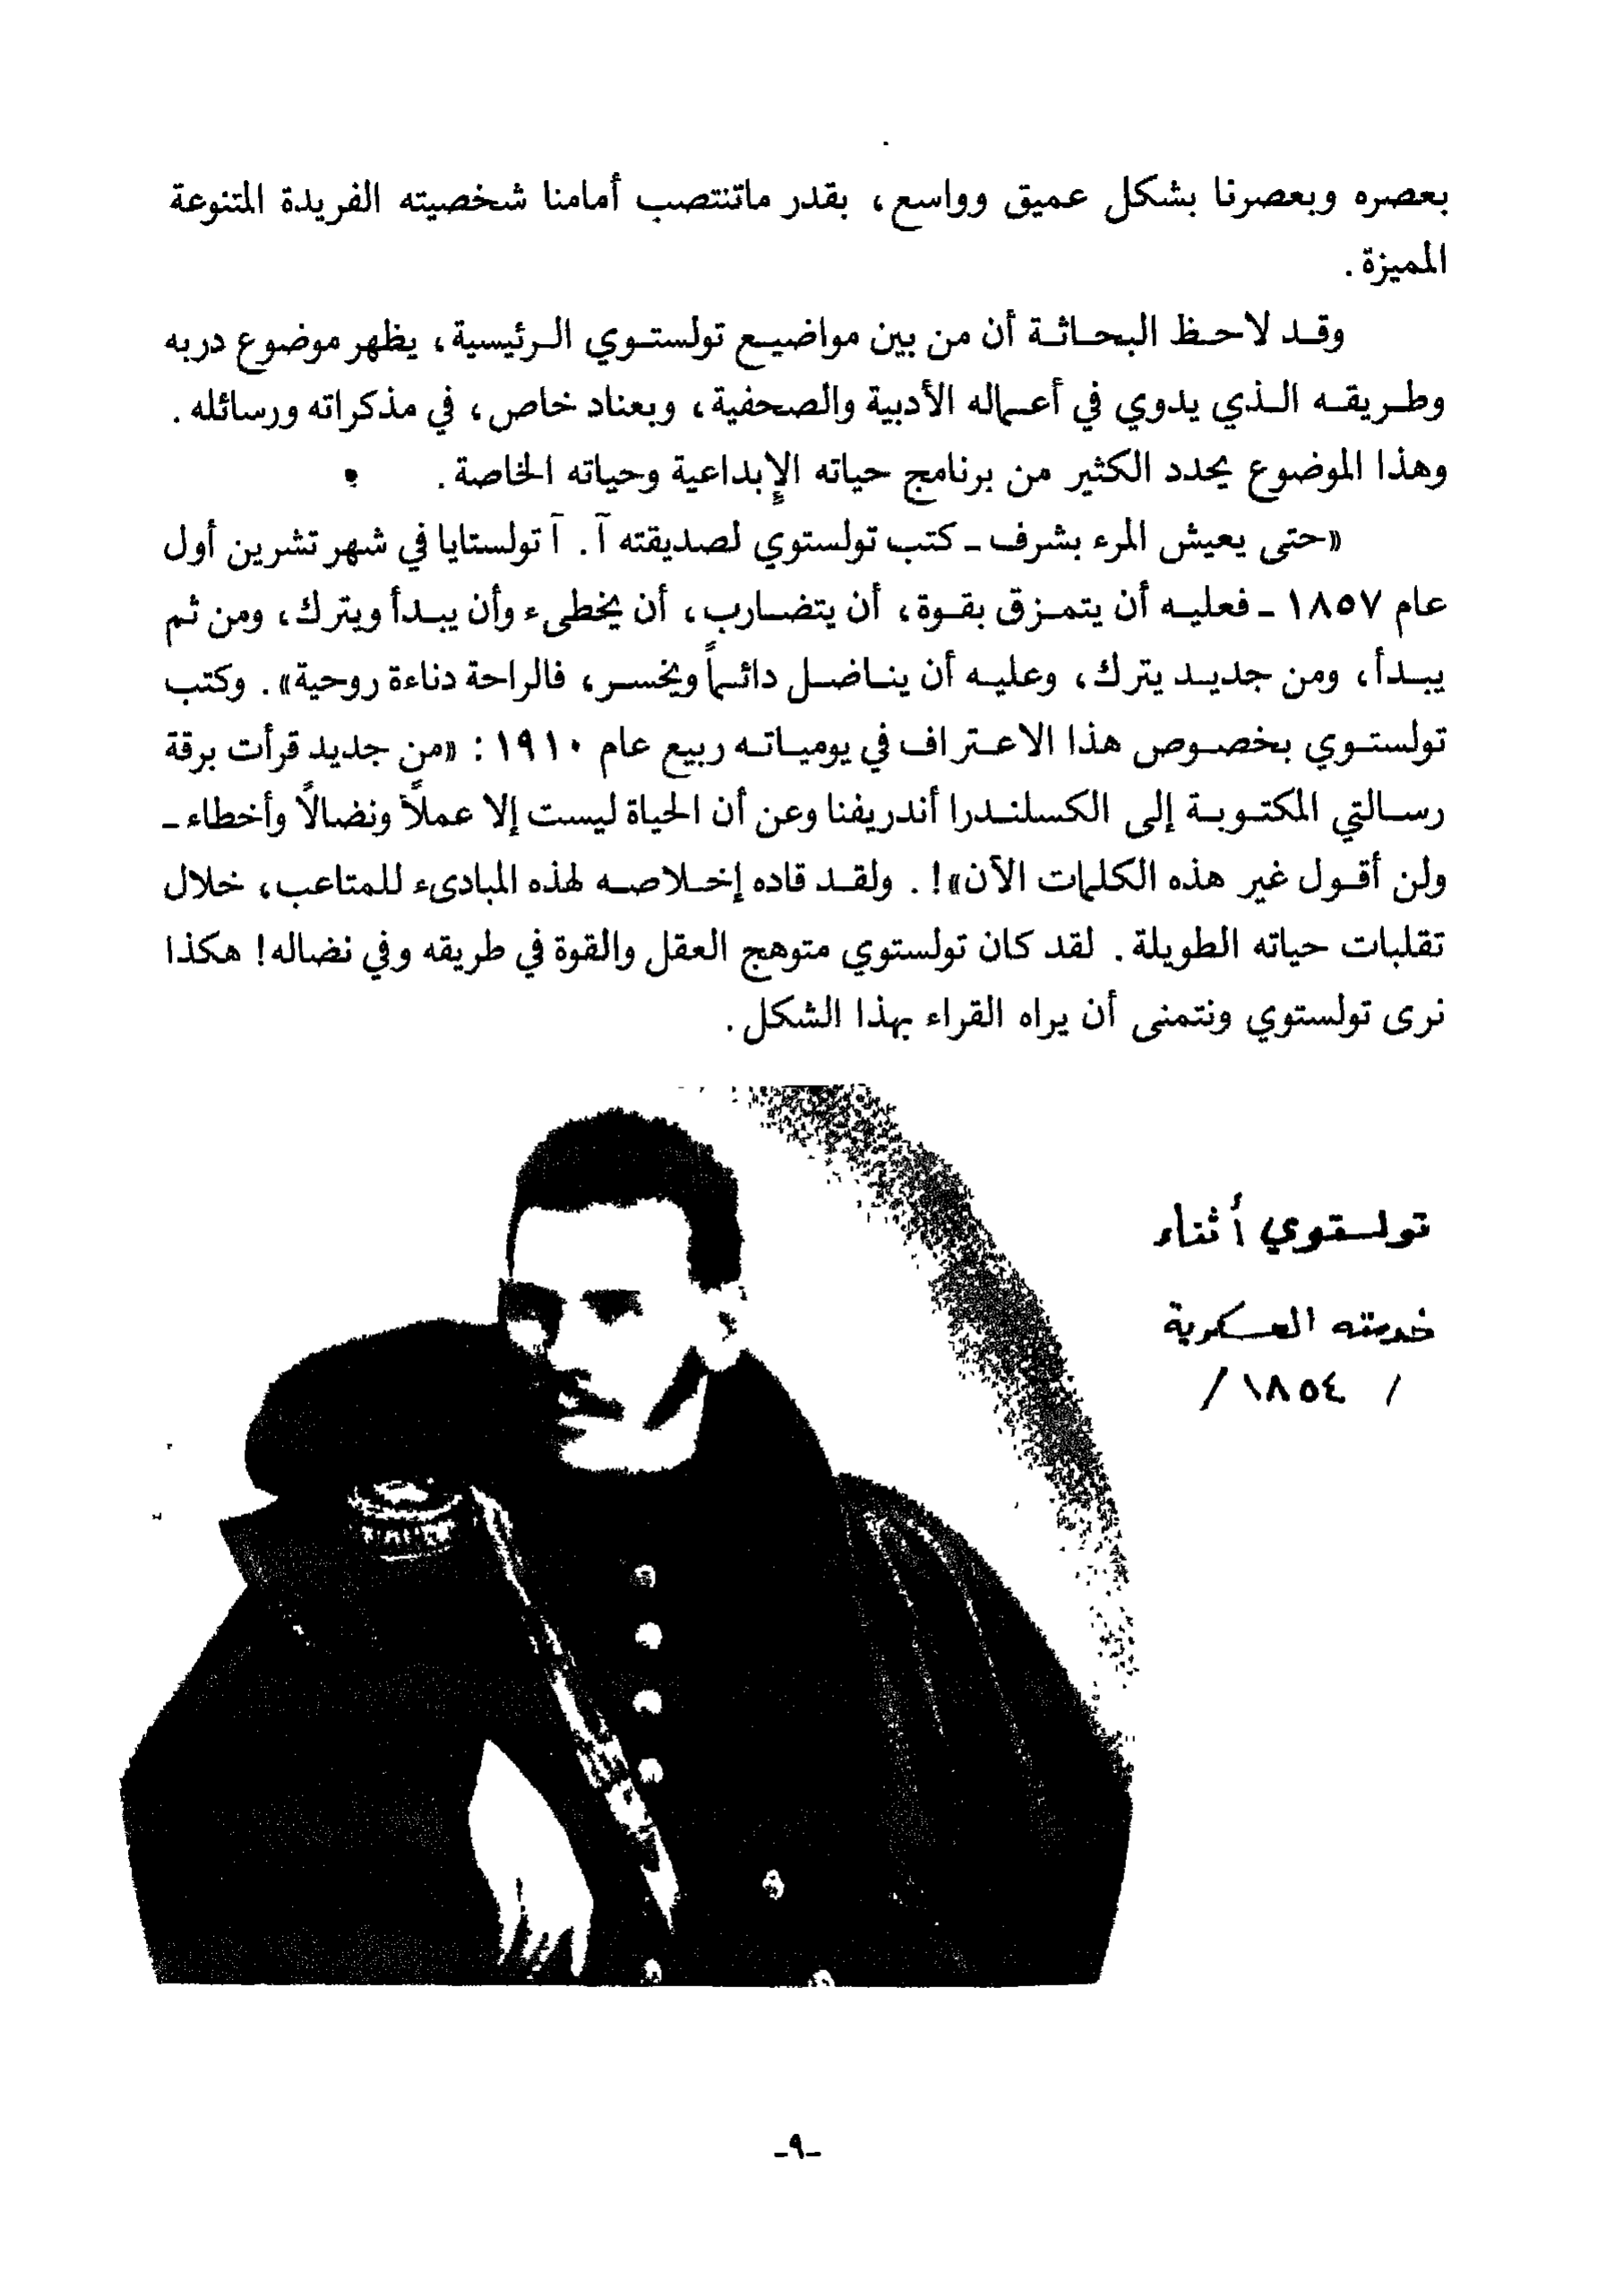 بعصره وبعصرنا بشكل عميق وواسع، بقدر ماتنتصب أمامنا شخصيته الفريدة المتنوعة
المميزة.
وقد لاحظ البحاثة أن من بين مواضيع تولستوي الرئيسية، يظهر موضوع دربه
وطريقه الذي يدوي في أعماله الأدبية والصحفية، وبعناد خاص، في مذكراته ورسائله.
وهذا الموضوع يحدد الكثير من برنامج حياته الإبداعية وحياته الخاصة.
«حتى يعيش المرء بشرف ـ كتب تولستوي لصديقته آ. آ تولستايا في شهر تشرين أول
عام ١٨٥٧ ـ فعليه أن يتمزق بقوة، أن يتضارب، أن يخطىء وأن يبدأ ويترك، ومن ثم
يبدأ، ومن جديد يترك، وعليه أن يناضل دائماً ويخسر، فالراحة دناءة روحية». وكتب
تولستوي بخصوص هذا الاعتراف في يومياته ربيع عام ١٩١٠: «من جديد قرأت برقة
رسالتي المكتوبة إلى الكسلندرا أندريفنا وعن أن الحياة ليست إلا عملاً ونضالاً وأخطاء ـ
ولن أقول غير هذه الكلمات الآن»!. ولقد قاده إخلاصه لهذه المبادىء للمتاعب، خلال
تقلبات حياته الطويلة. لقد كان تولستوي متوهج العقل والقوة في طريقه وفي نضاله! هكذا
نرى تولستوي ونتمنى أن يراه القراء بهذا الشكل.
تولستوي أثناء
خدمته العسكرية
/ ١٨٥٤ /
ـ٩ـ